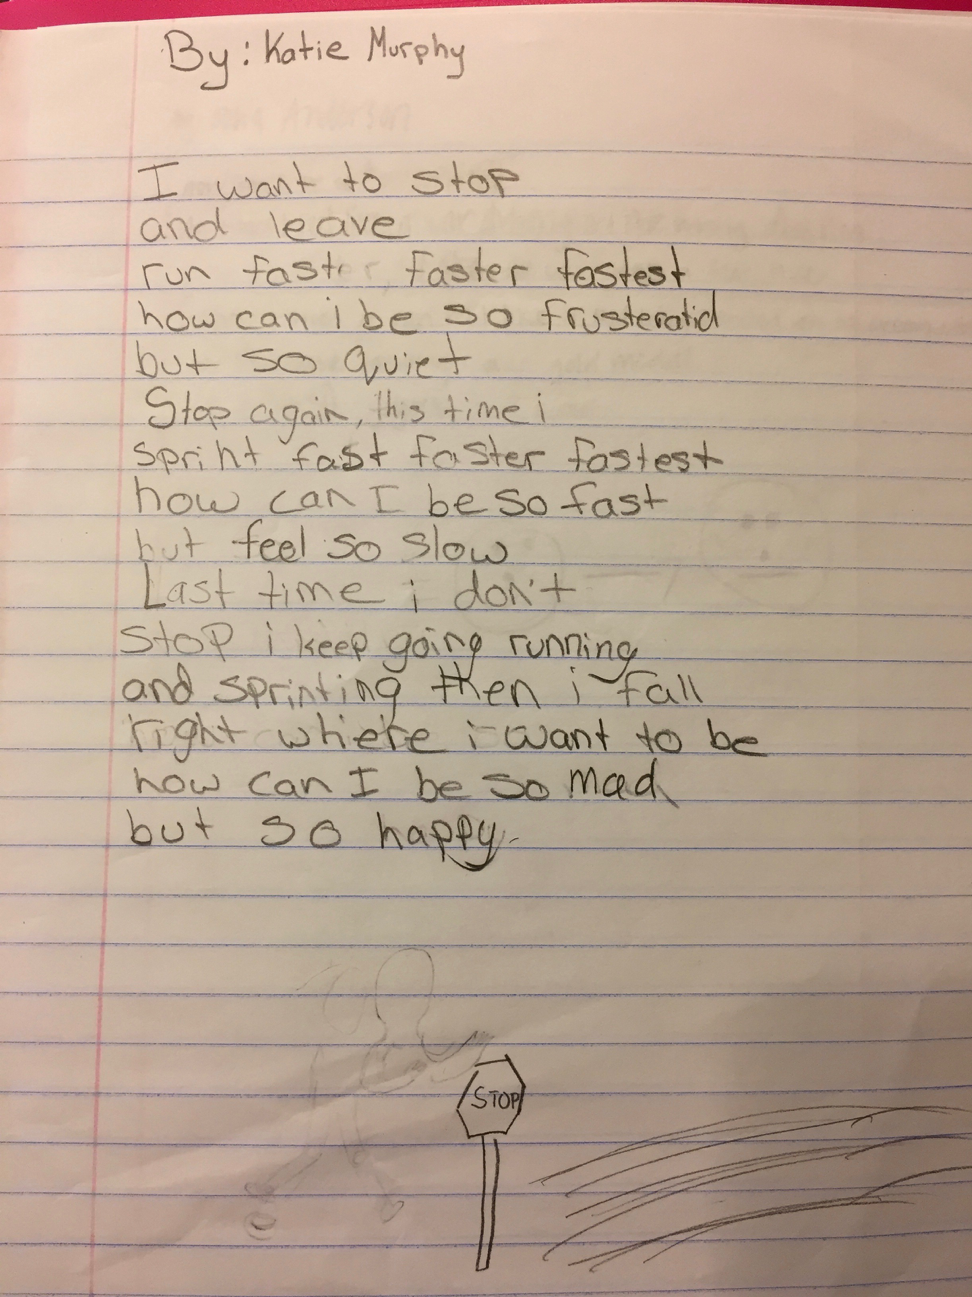 By: Katie Murphy
I want to stop
and leave
run fastr, faster fastest
how can i be so frusteratid
but so quiet
Stop again, this time i
sprint fast faster fastest
how can I be so fast
but feel so slow
Last time i don't
stop i keep going running
and sprinting then i fall
right where i want to be
how can I be so mad
but so happy.
STOP